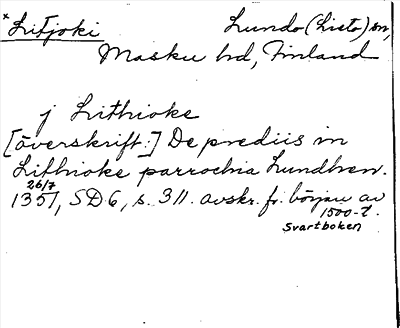 * Litjoki Lundo (Lieto) sn,
Masku hd, Finland
j Lithioke
[överskrift:] De prediis in
Lithioke parrochia Lundhen.
26/7
1351, SD 6, s. 311. avskr. fr. början av
1500-t.
Svartboken